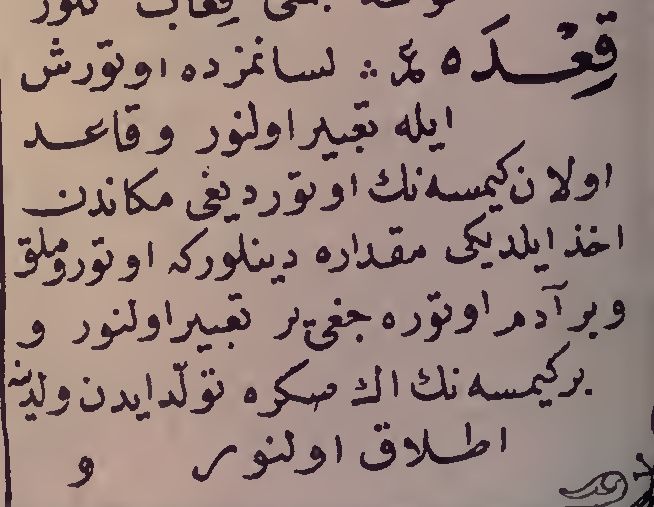 قِعْدَه لسانمزده اوتورش
ايله تعبير اولنور و قاعد
اولان كيمسه نك اوتورديغى مكاندن
اخذ ايلديكى مقداره دينلور كه اوتوروملق
و بر آدم اوتوره جغى ير تعبير اولنور و
بر كيمسه نك اك صكره تولّد ايدن ولدينه
اطلاق اولنور و